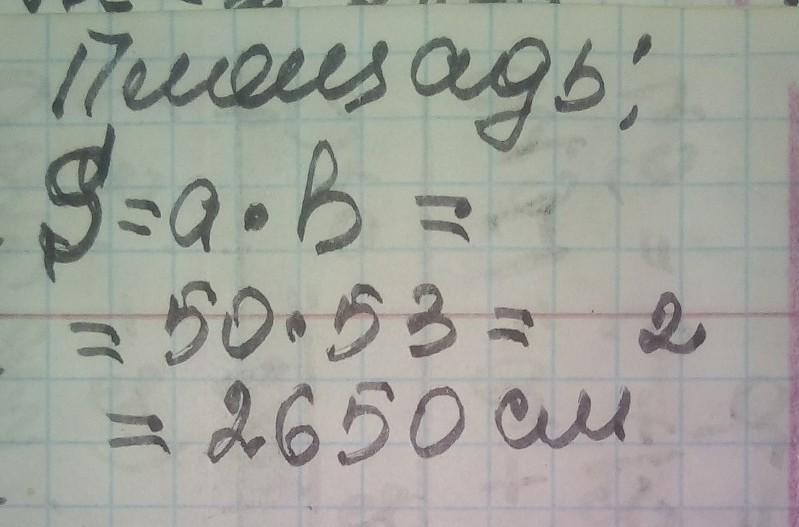 Площадь:
S=a·b=
=50·53=
=2650 см²